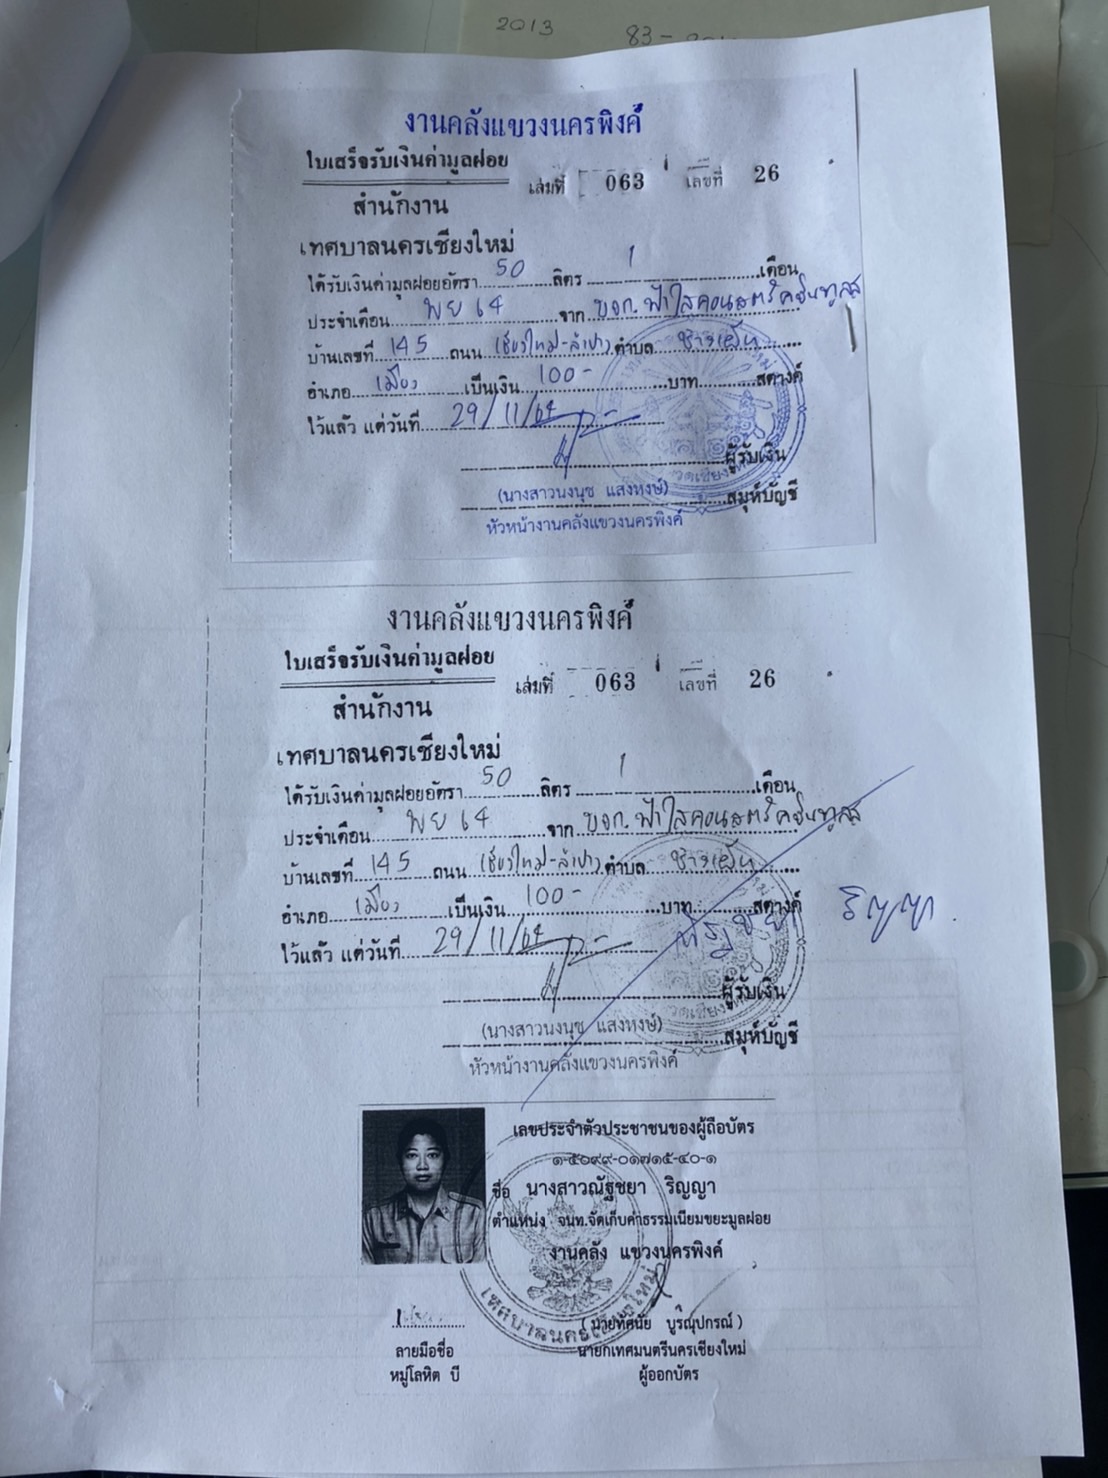 2013
83 -
งานคลังแขวงนครพิงค์
ใบเสร็จรับเงินค่ามูลฝอย
เล่มที่ 063 เลขที่ 26
สำนักงาน
เทศบาลนครเชียงใหม่
ได้รับเงินค่ามูลฝอยอัตรา 50 ลิตร 1 เดือน
ประจำเดือน พย 64 จาก บจก. ฟ้าใสคอนสตรัคชั่นทูลส
บ้านเลขที่ 145 ถนน เชียงใหม่-ลำปาง ตำบล ช้างเผือก
อำเภอ เมือง เป็นเงิน 100- บาท สตางค์
ไว้แล้ว แต่วันที่ 29/11/64
ผู้รับเงิน
(นางสาวนงนุช แสงหงษ์) สมุห์บัญชี
หัวหน้างานคลังแขวงนครพิงค์
งานคลังแขวงนครพิงค์
ใบเสร็จรับเงินค่ามูลฝอย
เล่มที่ 063 เลขที่ 26
สำนักงาน
เทศบาลนครเชียงใหม่
ได้รับเงินค่ามูลฝอยอัตรา 50 ลิตร 1 เดือน
ประจำเดือน พย 64 จาก บจก. ฟ้าใสคอนสตรัคชั่นทูลส
บ้านเลขที่ 145 ถนน เชียงใหม่-ลำปาง ตำบล ช้างเผือก
อำเภอ เมือง เป็นเงิน 100- บาท สตางค์
ณัฐชยา ริญญา
ไว้แล้ว แต่วันที่ 29/11/64
ผู้รับเงิน
(นางสาวนงนุช แสงหงษ์) สมุห์บัญชี
หัวหน้างานคลังแขวงนครพิงค์
เลขประจำตัวประชาชนของผู้ถือบัตร
๑-๕๐๙๙-๐๑๗๑๕-๔๐-๑
ชื่อ นางสาวณัฐชยา ริญญา
ตำแหน่ง จนท.จัดเก็บค่าธรรมเนียมขยะมูลฝอย
งานคลัง แขวงนครพิงค์
เทศบาลนครเชียงใหม่
(นายทัศนัย บูรณุปกรณ์)
ลายมือชื่อ นายกเทศมนตรีนครเชียงใหม่
หมู่โลหิต บี ผู้ออกบัตร